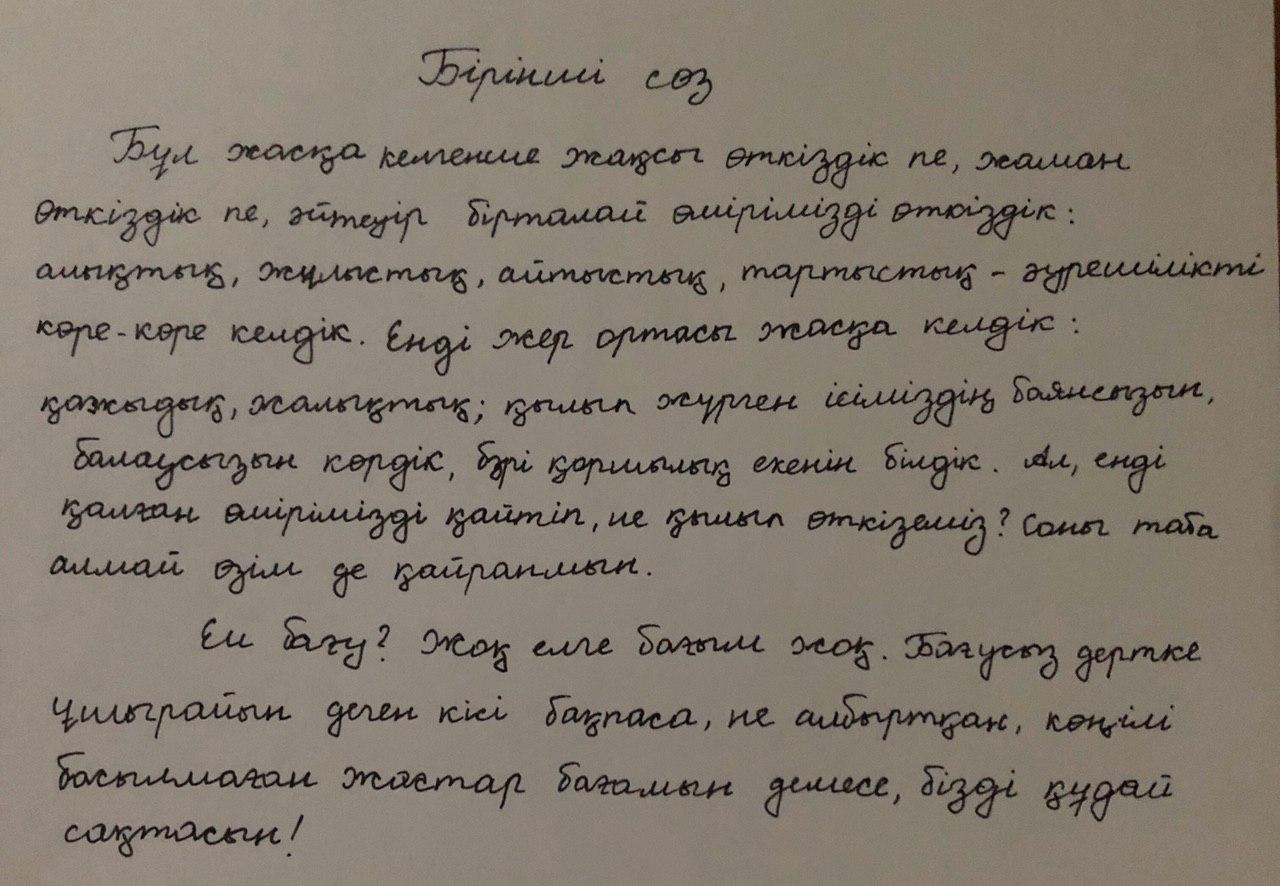 Бірінші сөз
Бұл жасқа келгенше жақсы өткіздік пе, жаман
өткіздік пе, әйтеуір бірталай өмірімізді өткіздік:
алыстық, жұлыстық, айтыстық, тартыстық - әурешілікті
көре-көре келдік. Енді жер ортасы жасқа келдік:
қажыдық, жалықтық; қылып жүрген ісіміздің баянсызын,
балаусызын көрдік, бәрі қоршылық екенін білдік. Ал, енді
қалған өмірімізді қайтіп, не қылып өткіземіз? Соны таба
алмай өзім де қайранмын.
Ел бағу? Жоқ елге бағым жоқ. Бағусыз дертке
ұшырайын деген кісі бақпаса, не албыртқан, көңілі
басылмаған жастар бағамын демесе, бізді құдай
сақтасын!